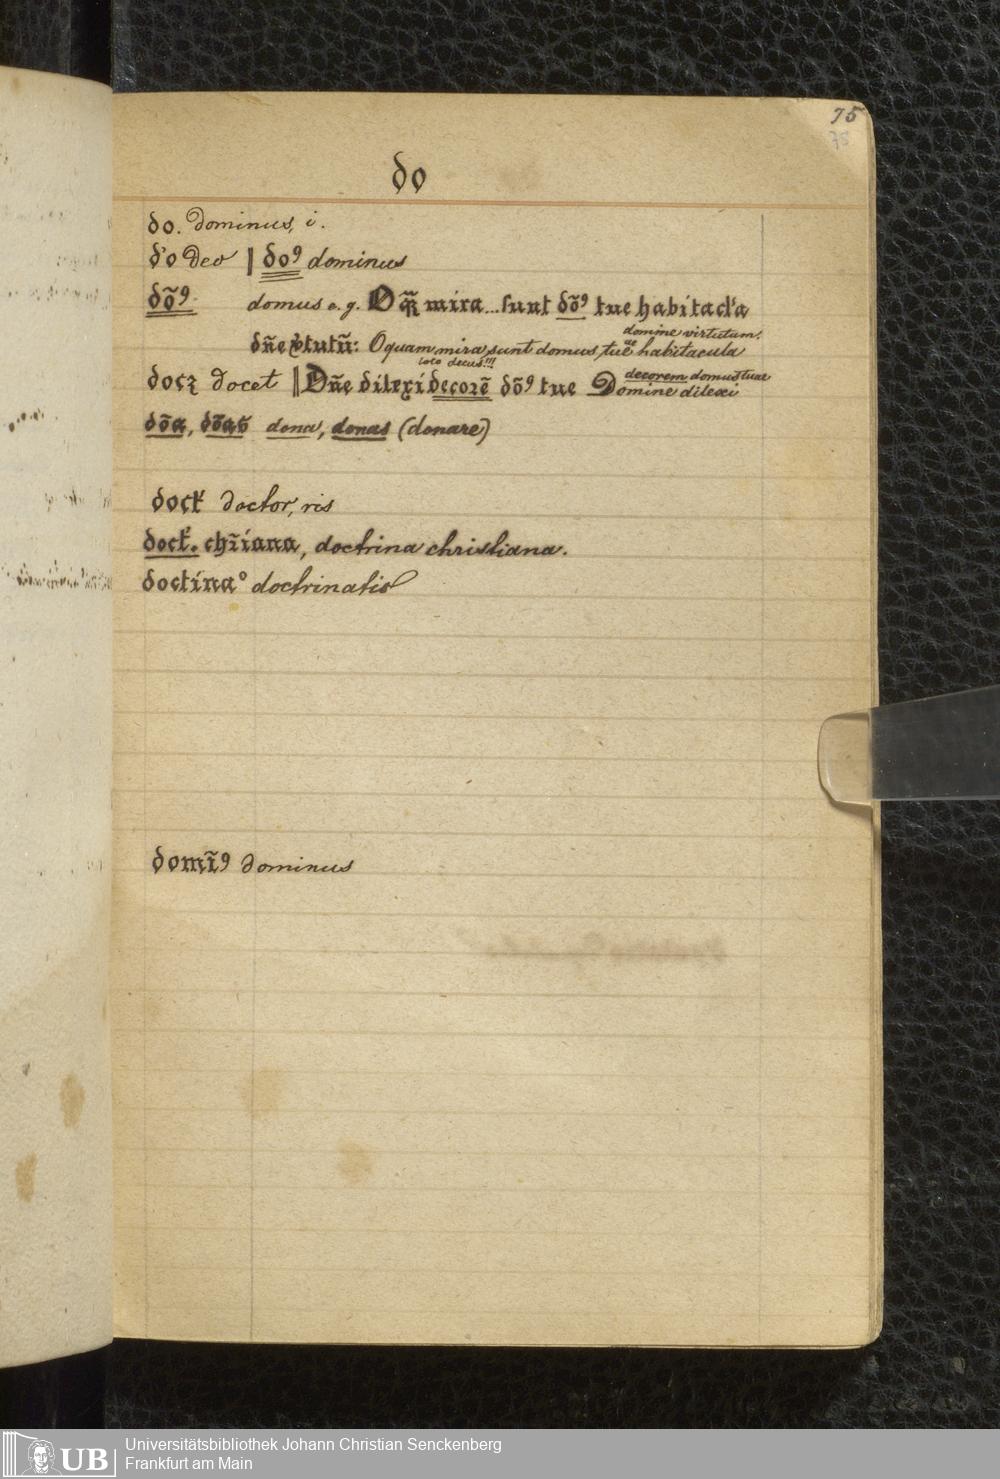 75
75
do
do. Dominus, i.
d'o Deo | doꝰ dominus
dõꝰ. domus e.g. O qz̃ mira...sunt dõꝰ tue habitacl'a
domine virtutum.
dñe v̾tutũ: O quam mira sunt domus, tuæ habitacula
loco decus!!!
decorem domus tuae
docꝫ docet || Dñe dilexi decorẽ dõꝰ tue Domine dilexi
dõa, dõas dona, donas (donare)
doct' doctor, ris
doct'. chr̃iana, doctrina christiana.
doctina° doctrinatio
domĩꝰ dominus
UB
Universitätsbibliothek Johann Christian Senckenberg
Frankfurt am Main